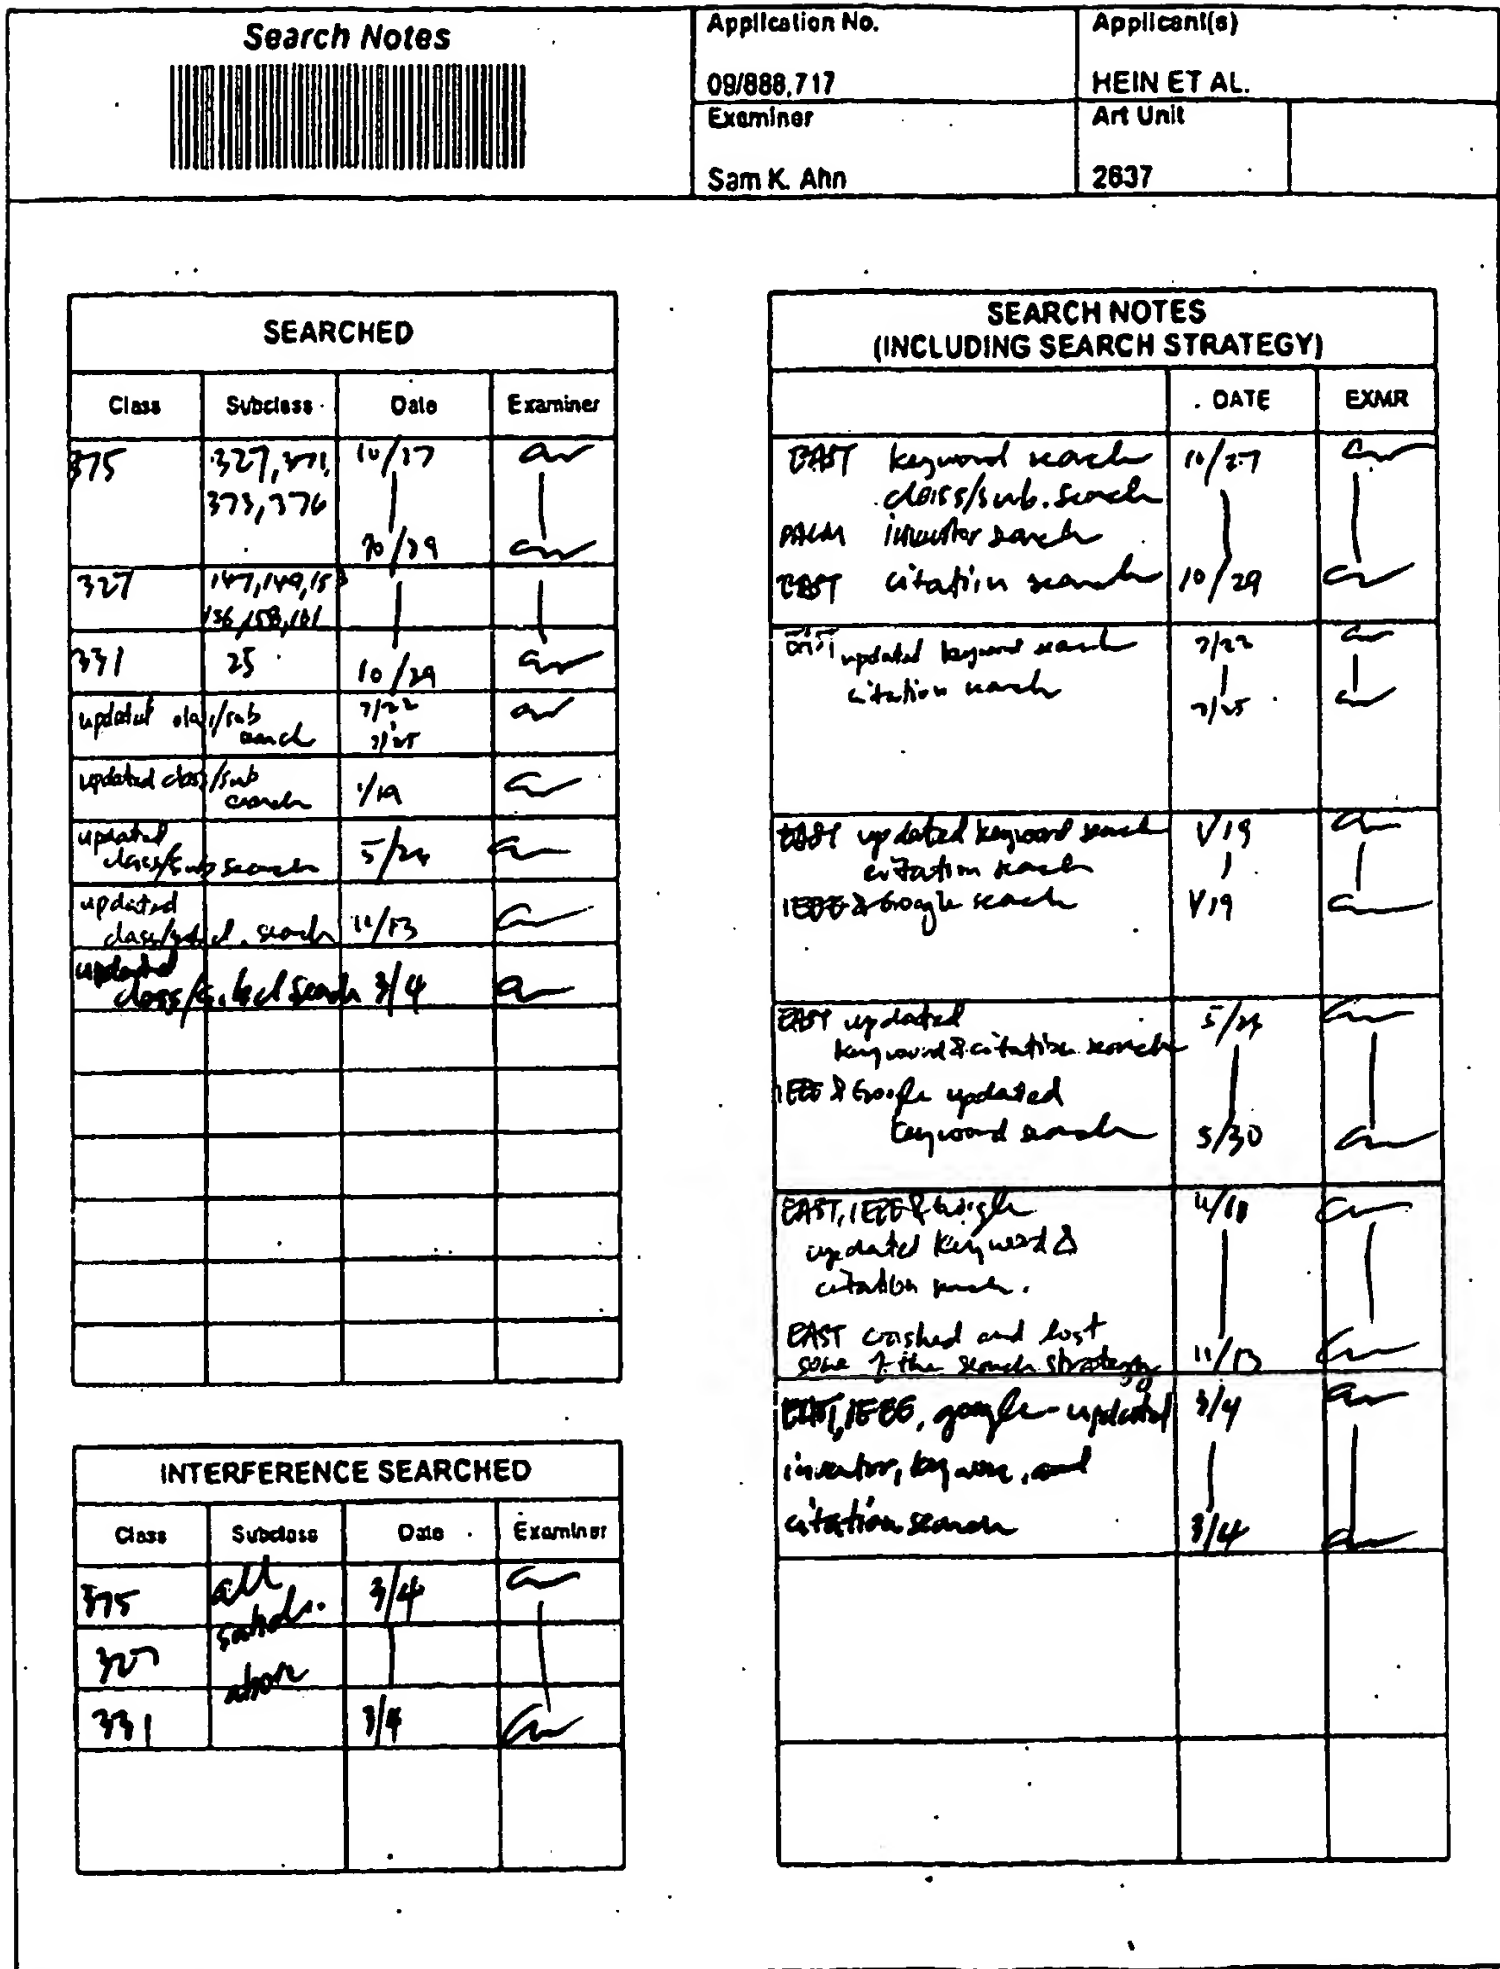 Search Notes
Application No.
09/888,717
Applicant(s)
HEIN ET AL.
Examiner
Sam K. Ahn
Art Unit
2637
SEARCHED
Class Subclass Date Examiner
375 327, 371, 10/27
373, 376
10/29
327 147, 149,
156, 158,
331 25 10/29
updated class/sub 7/22
search 7/25
updated class/sub 1/19
search
updated
class/sub search 5/24
updated
class/subcl. search 11/13
updated
class/subcl search 3/4
INTERFERENCE SEARCHED
Class Subclass Date Examiner
375 all 3/4
subcls.
327
above
331 3/4
SEARCH NOTES
(INCLUDING SEARCH STRATEGY)
DATE EXMR
EAST keyword search 10/27
class/sub. search
PALM inventor search
EAST citation search 10/29
updated keyword search 7/22
citation search
7/25
EAST updated keyword search 1/19
citation search
IEEE & Google search 1/19
EAST updated 5/24
keyword & citation search
IEEE & Google updated
keyword search 5/30
EAST, IEEE & Google
updated keyword &
citation search.
EAST crashed and lost
some of the search strategy 11/13
EAST, IEEE, google - updated 3/4
inventor, keyword, and
citation search 3/4